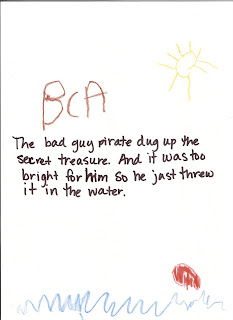 BCA
The bad guy pirate dug up the
secret treasure. And it was too
bright for him so he just threw
it in the water.